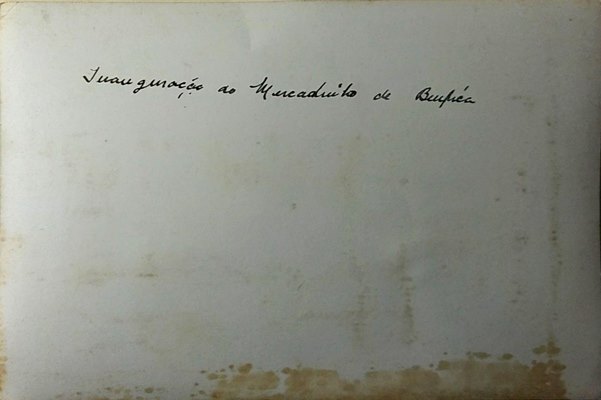 Inauguração do Mercadinho de Benfica